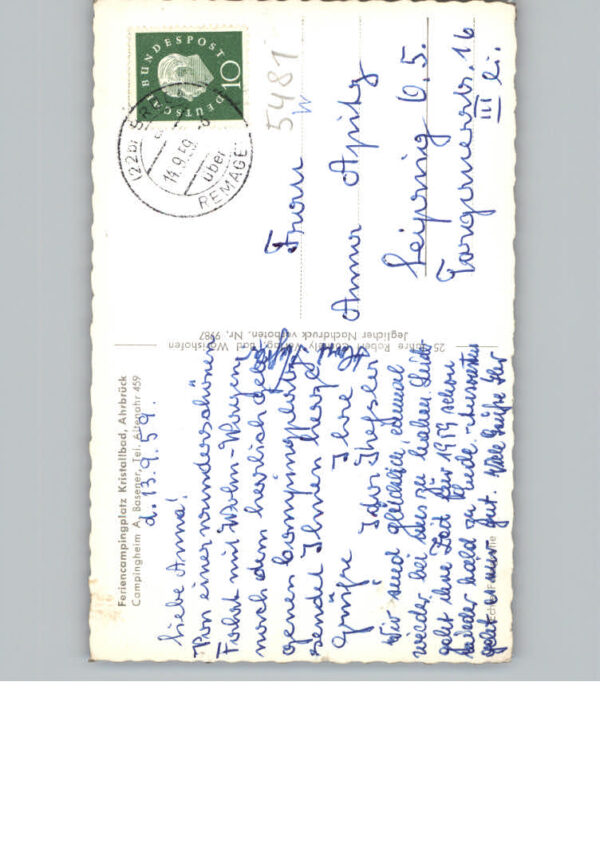 Feriencampingplatz Kristallbad, Ahrbrück
Campingheim A. Basener, Tel. Altenahr 459
d. 13.9.59.
Liebe Anna!
Von einer wunderschönen
Fahrt mit Wohn-Wagen
nach dem herrlich gele-
genen Campingplatz
sendet Ihnen herzl.
Grüße Ihre
Wir sind glücklich, einmal
wieder bei uns zu haben. Leider
geht die Zeit für 1959 schon
wieder bald zu Ende.
geht es nur gut. Viele Grüße
25 Jahre Robert Verlag, Bad Wörishofen
Jeglicher Nachdruck verboten. Nr. 9787
DEUTSCHE BUNDESPOST
10
(22b)
14.9.59
über
REMAGEN
5481
W
Frau
Anna Apitz
Leipzig O.5.
16
III li.